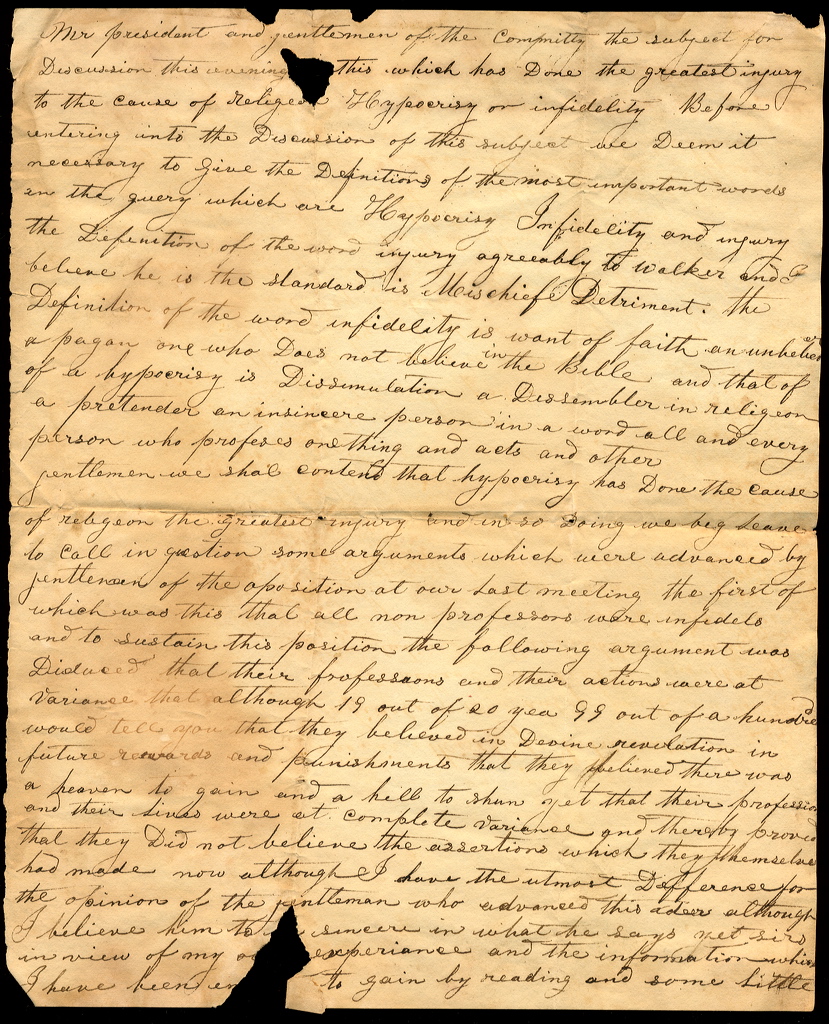 Mr president and gentlemen of the Committy the subject for
Discussion this evening this which has Done the greatest injury
to the cause of religeon Hypocrisy or infidelity Before
entering into the Discussion of this subject we Deem it
necessary to Give the Definitions of the most important words
in the query which are Hypocrisy Infidelity and injury
the Definition of the word injury agreeably to Walker and I
believe he is the standard is Mischief Detriment. the
Definition of the word infidelity is want of faith an unbeliever
a pagan one who Does not believe in the Bible and that of
of a hypocrisy is Dissimulation a Dessembler in religeon
a pretender an insincere person in a word all and every
person who profeses onething and acts and other
gentlemen we shal contend that hypocrisy has Done the cause
of religeon the greatest injury and in so Doing we beg Leave
to call in question some arguments which were advanced by
gentlemen of the oposition at our Last meeting the first of
which was this that all non professors were infidels
and to sustain this position the following argument was
Diduced that their professaons and their actions were at
variance that although 19 out of 20 yea 99 out of a hundred
would tell you that they believed in Devine revelation in
future rewards and punishments that they believed there was
a heaven to gain and a hell to shun yet that their profession
and their lives were at complete variance and thereby proved
that they Did not believe the assertions which they themselves
had made now although I have the utmost Defference for
the opinion of the gentleman who advanced this adeer although
I believe him to sincere in what he says yet sirs
in view of my experiance and the information which
I have been to gain by reading and some Little